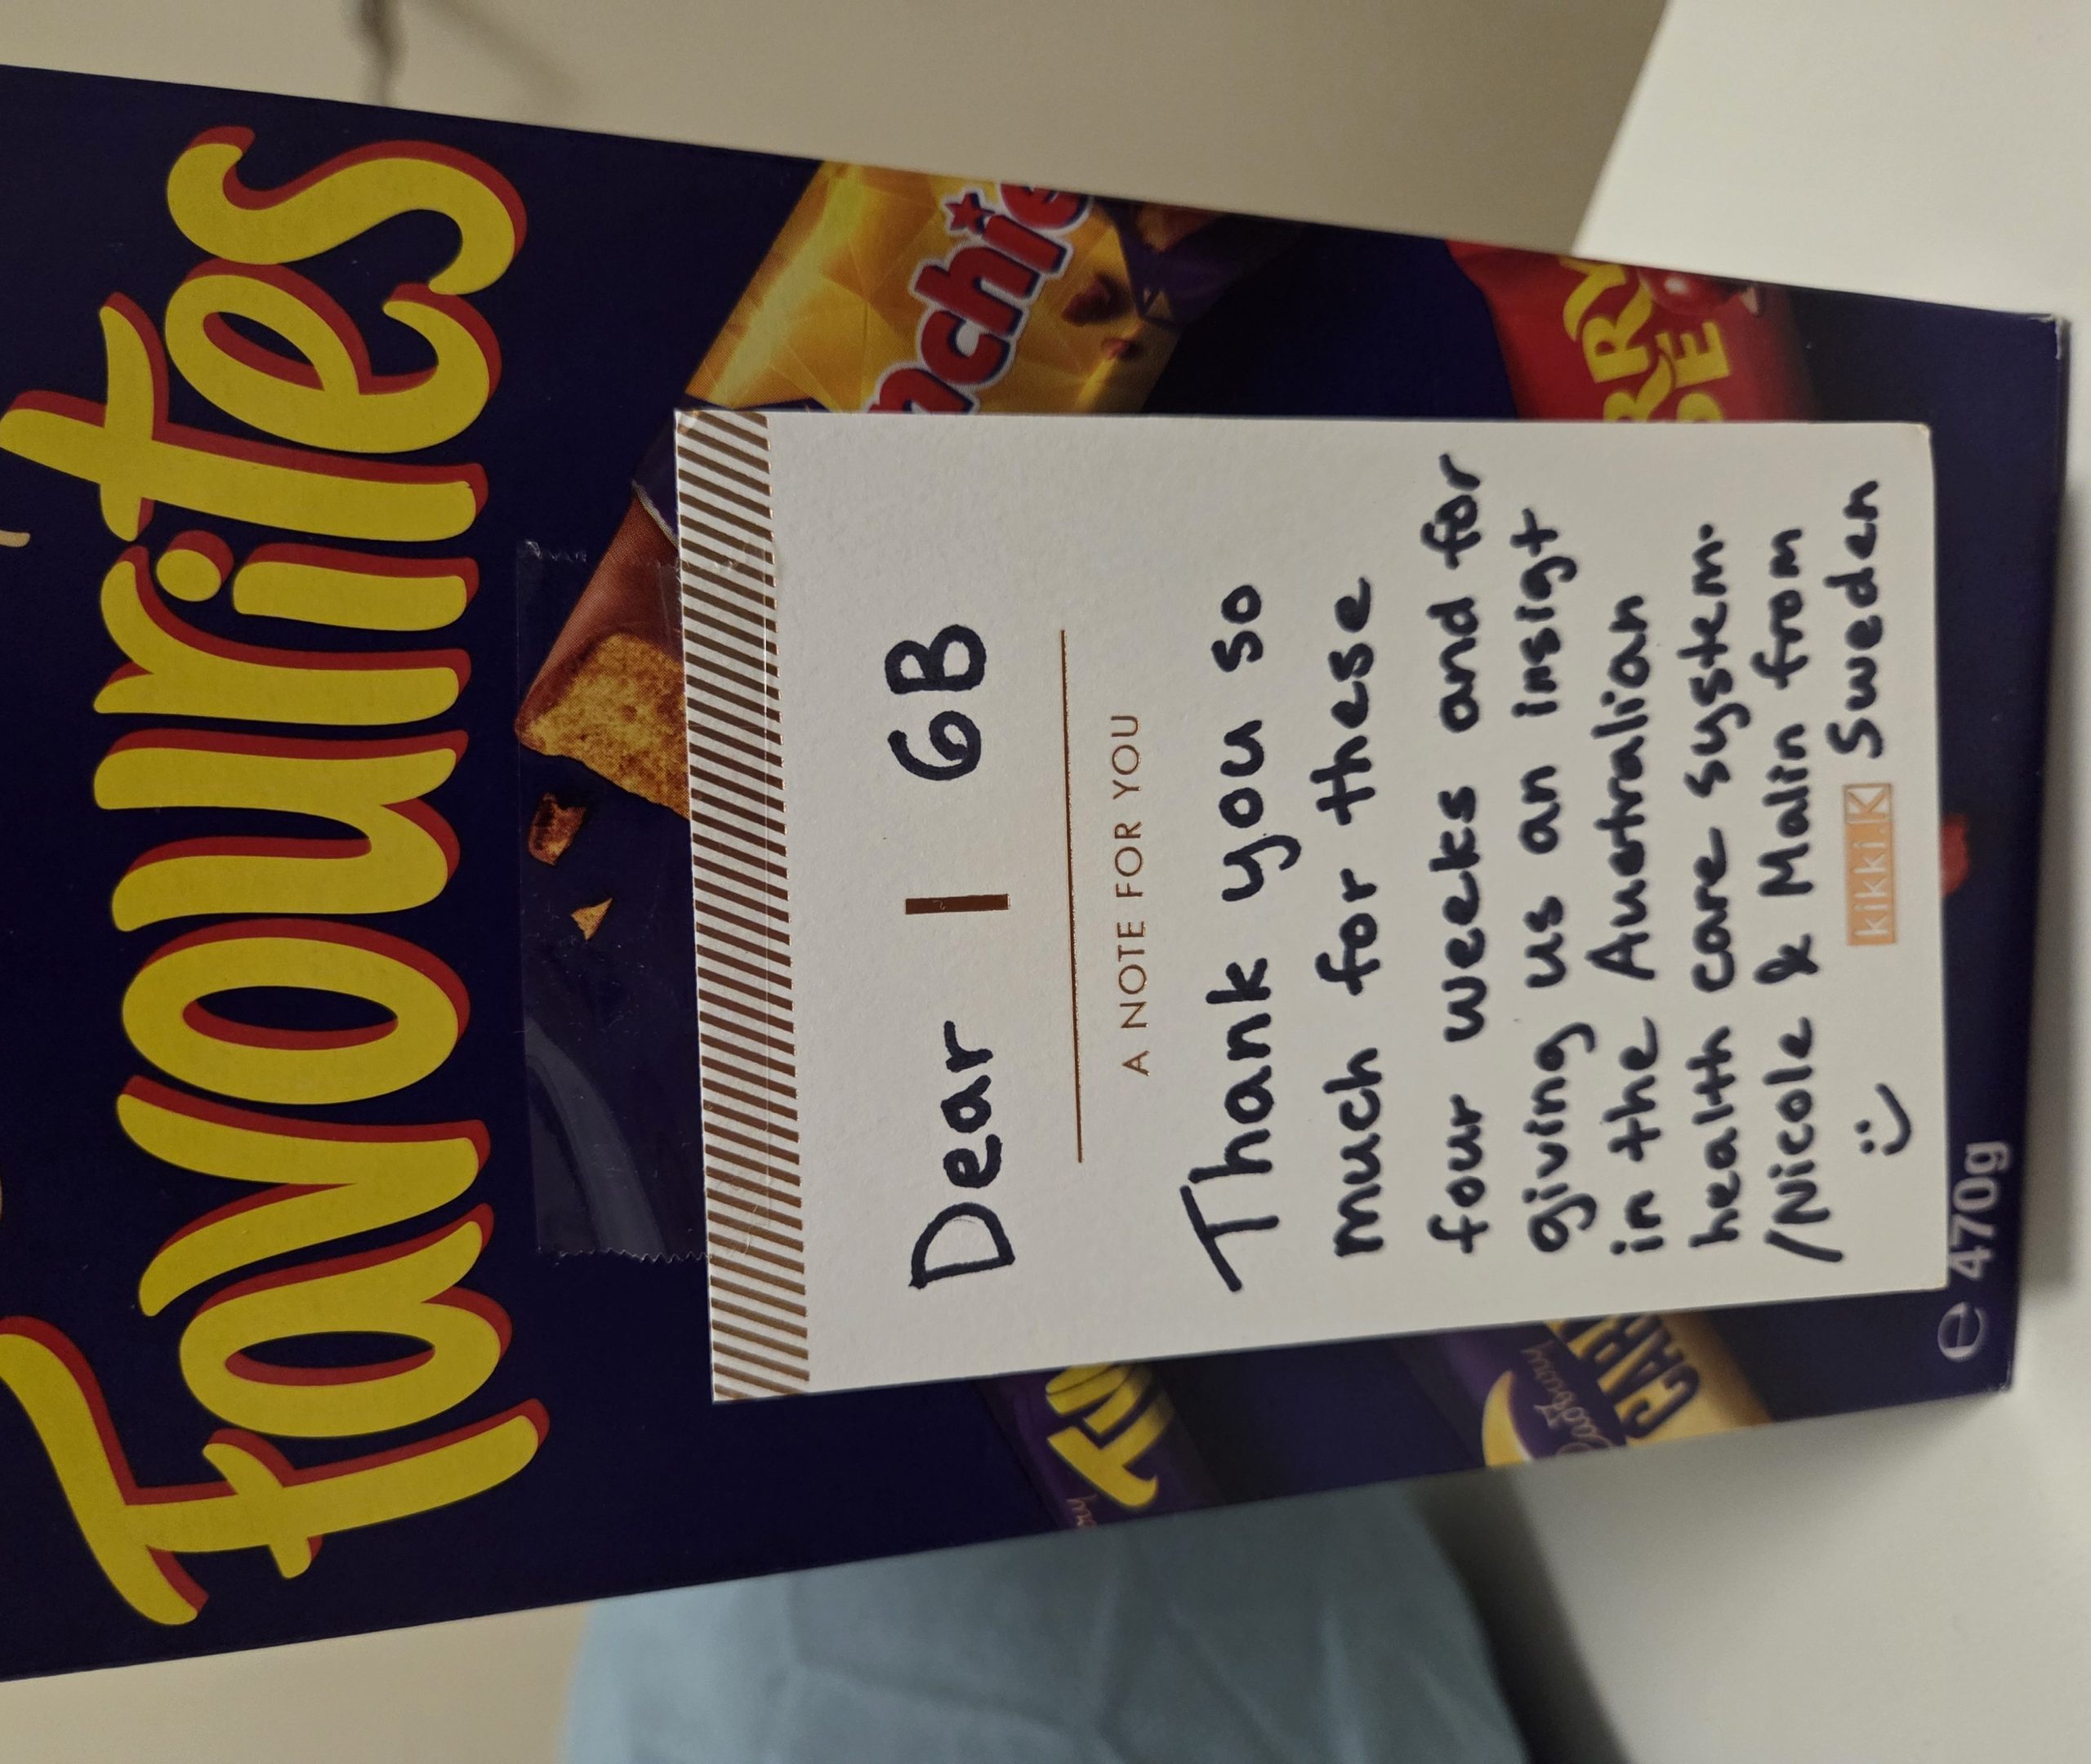 Favourites
nchie
RRY
PE
Dear | 6B
A NOTE FOR YOU
Thank you so
much for these
four weeks and for
giving us an insigt
in the Australian
health care system.
/Nicole & Malin from
:) Sweden
kikki.K
Cadbury
CAR
e 470g